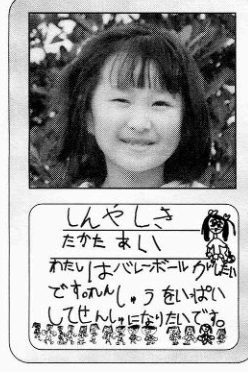 しんやしき
たかた あい
わたしはバレーボールがしたい
です。れんしゅうをいっぱい
してせんしゅになりたいです。